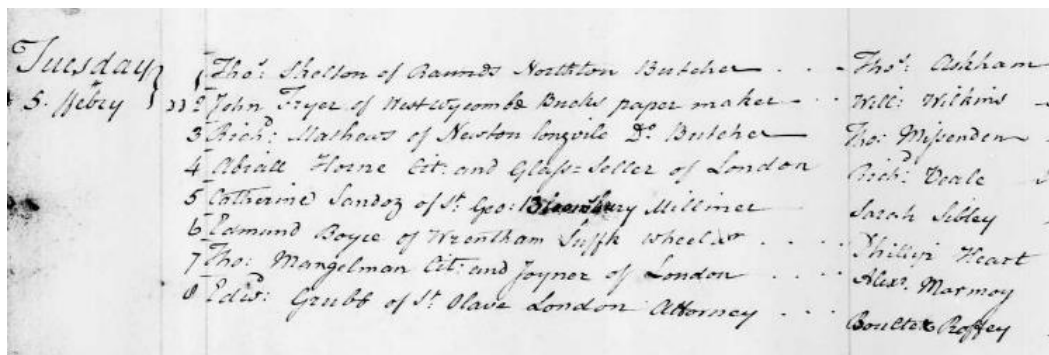 Tuesday 1 Tho.s Shelton of Raunds Northton Butcher - - - Tho.s Askham
5. ffebry 2 John Fryer of West Wycombe Bucks paper maker - - - Will: Wilkins
3 Rich.d: Mathews of Newton longvile D.o Butcher Tho: Missenden
4 Abiall Horne Cit: and Glass-Seller of London Rich.d: Deale
5 Catherine Sandoz of St. Geo: Bloomsbury Milliner Sarah Sibley
6 Edmund Boyce of Wrentham Suffk wheeler - - - - Phillip Heart
7 Tho: Mangelman Cit: and Joyner of London - - - - Alex.r Marmoy
8 Edw.d: Grubb of St. Olave London Attorney - - - Boulter Roffey